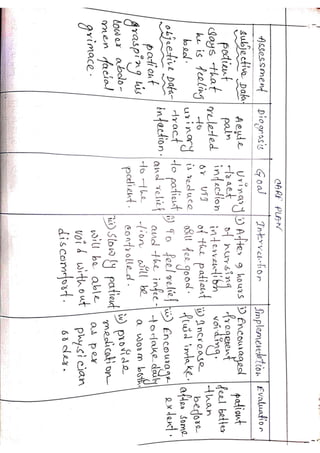 CARE PLAN
Assessment
Diognosis
Goal
Intervention
Implementation
Evaluation
Subjective Data-
patient
says that
he is feeling
bed.
Objective Data-
patient
grasping his
lower abdo-
men facial
grimace.
Acute
pain
releted
to
urinary
-tract
infection.
Urinary
-tract
infection
or UTI
is reduce
-to patient
and relief
-to -the
patient.
i) After 2 hours
of nursing
intervention
of the patient
will fee good.
ii) To feel relief
and the infec-
-tion will be
controlled.
iii) Slowly patient
will be able
void without
discomfort.
i) Encouraged
frequent
voiding.
ii) Increase
fluid intake.
iii) Encourage
-to-take daily
a worm bath
iv) provide
medication
as per
physician
order.
patient
feel better
-than
before
after some
extent.